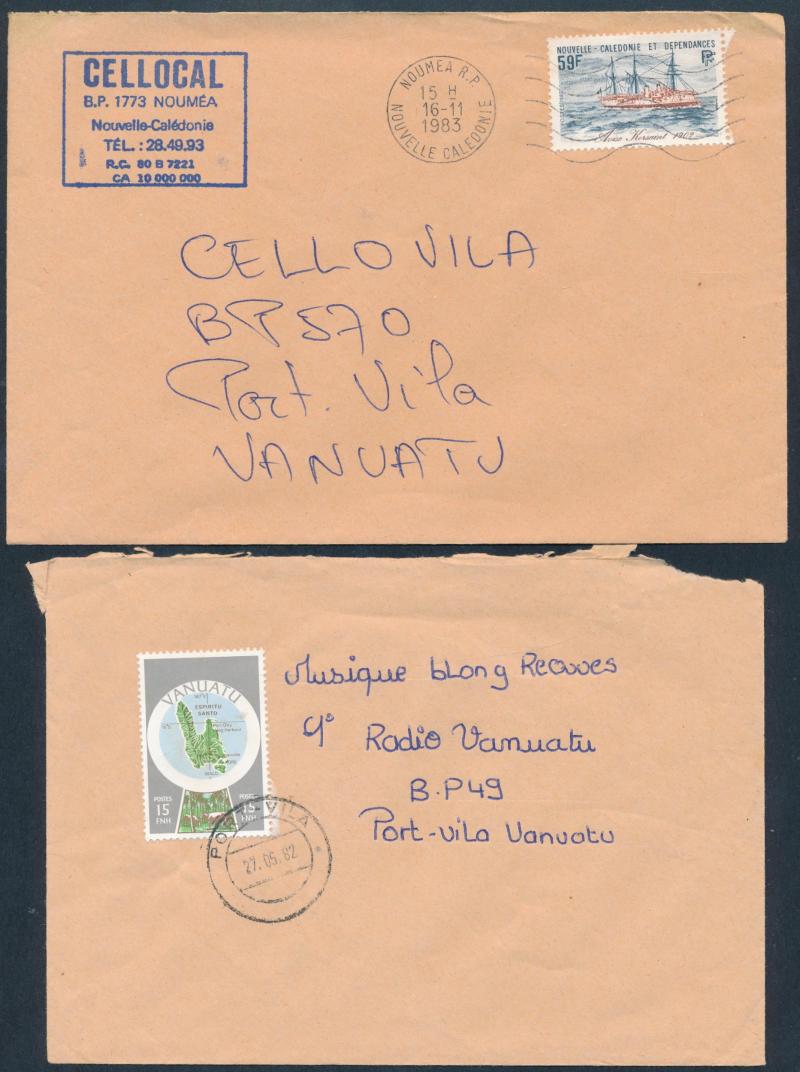 CELLOCAL
B.P. 1773 NOUMÉA
Nouvelle-Calédonie
TÉL. : 28.49.93
R.C. 80 B 7221
CA 10 000 000
NOUMEA R.P.
15 H
16-11
1983
NOUVELLE CALEDONIE
NOUVELLE-CALEDONIE ET DEPENDANCES
59F
Aviso Kersaint 1902
CELLOVILA
BP 570
Port. Vila
VANUATU
VANUATU
ESPIRITU
SANTO
MALO
POSTES
15
FNH
POSTES
15
FNH
PORT-VILA
27.05.82
Musique bLong Reaves
Radio Vanuatu
B.P49
Port-Vila Vanuatu